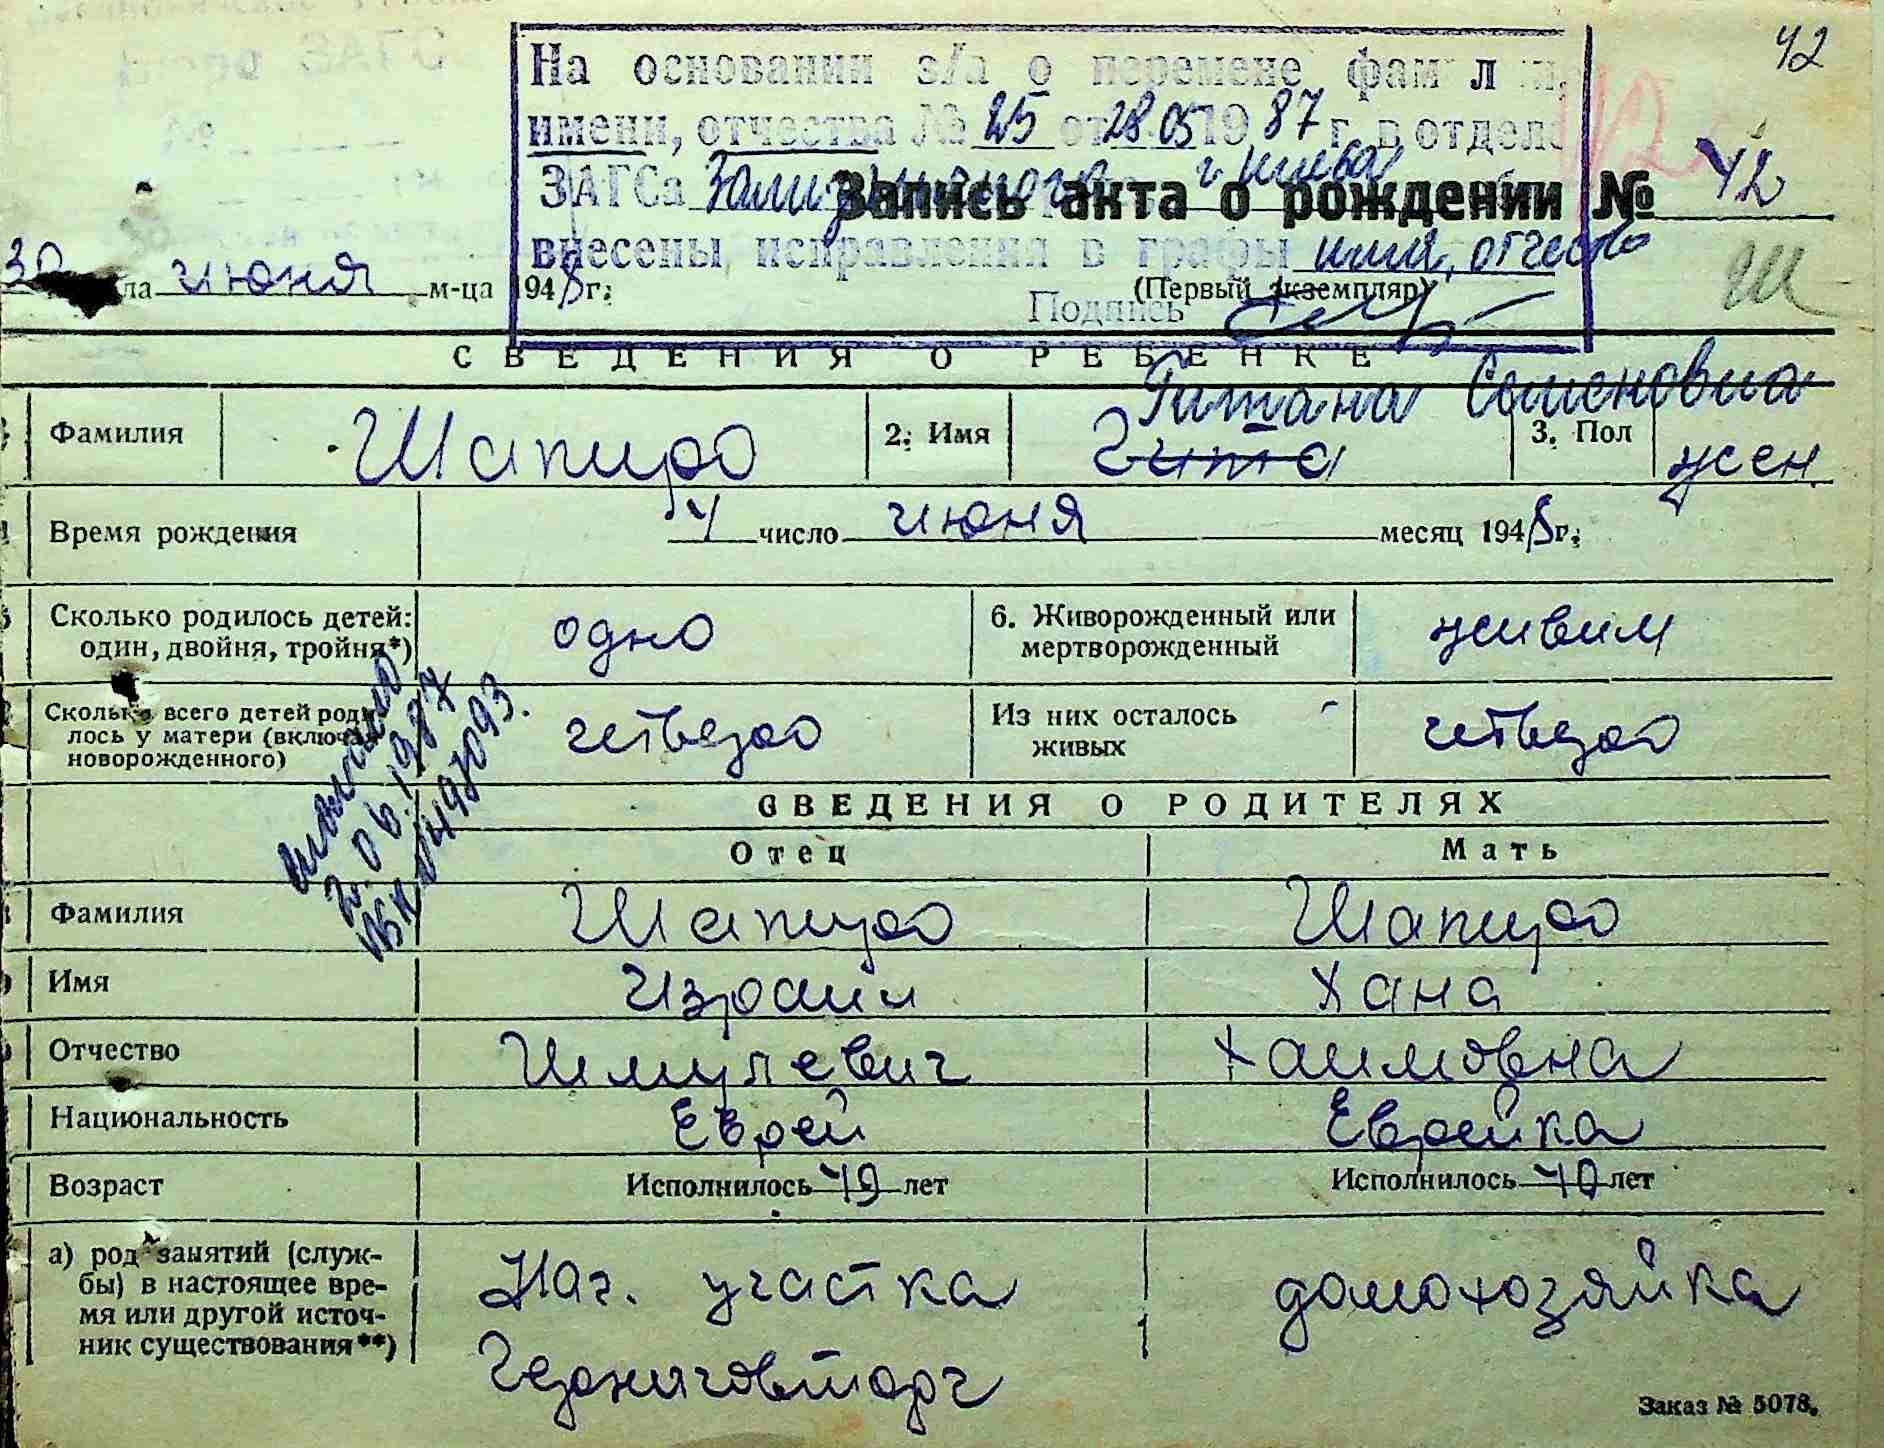 42
На основании з/а о перемене фам л и,
имени, отчества № 25 от 28.05 19 87 г. в отделе
ЗАГСа г. Киева
Запись акта о рождении № 42
внесены исправления в графы имя, отчество
30 ла июня м-ца 1948 г.
(Первый экземпляр)
Подпись
СВЕДЕНИЯ О РЕБЕНКЕ
Татьяна Семеновна
Фамилия Шапиро 2. Имя Гита 3. Пол жен.
Время рождения 4 число июня месяц 1948 г.
Сколько родилось детей: одно 6. Живорожденный или живым
один, двойня, тройня*) мертворожденный
Сколько всего детей роди- четверо Из них осталось четверо
лось у матери (включая живых
новорожденного)
2.06.1987
497093.
СВЕДЕНИЯ О РОДИТЕЛЯХ
Отец Мать
Фамилия Шапиро Шапиро
Имя Израил Хана
Отчество Шмулевич Хаимовна
Национальность Еврей Еврейка
Возраст Исполнилось 49 лет Исполнилось 40 лет
а) род занятий (служ- Нач. участка домохозяйка
бы) в настоящее вре-
мя или другой источ-
ник существования**) Черниговторг
Заказ № 5078.